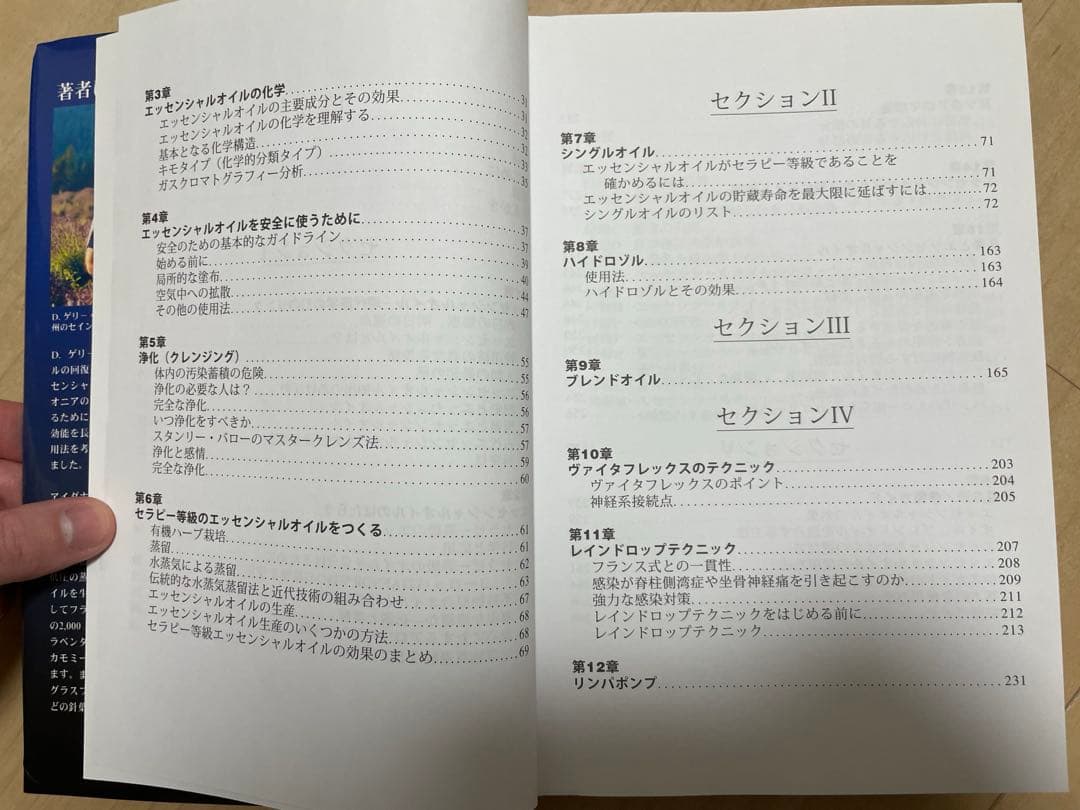 著者
D. ゲリー
州のセイン
D. ゲリー
ルの回復
センシャ
オニアの
るために
効能を長
用法を考
ました。
アイダホ
イルを生
してフラ
の2,000
ラベンダ
カモミー
ます。ま
グラスフ
どの針葉
第3章
エッセンシャルオイルの化学......31
エッセンシャルオイルの主要成分とその効果......31
エッセンシャルオイルの化学を理解する......32
基本となる化学構造......32
キモタイプ（化学的分類タイプ）......33
ガスクロマトグラフィー分析......35
第4章
エッセンシャルオイルを安全に使うために......37
安全のための基本的なガイドライン......37
始める前に......39
局所的な塗布......40
空気中への拡散......44
その他の使用法......47
第5章
浄化（クレンジング）......55
体内の汚染蓄積の危険......55
浄化の必要な人は？......56
完全な浄化......56
いつ浄化をすべきか......57
スタンリー・バローのマスタークレンズ法......57
浄化と感情......59
完全な浄化......60
第6章
セラピー等級のエッセンシャルオイルをつくる......61
有機ハーブ栽培......61
蒸留......62
水蒸気による蒸留......63
伝統的な水蒸気蒸留法と近代技術の組み合わせ......67
エッセンシャルオイルの生産......68
エッセンシャルオイル生産のいくつかの方法......68
セラピー等級エッセンシャルオイルの効果のまとめ......69
セクションII
第7章
シングルオイル......71
エッセンシャルオイルがセラピー等級であることを
確かめるには......71
エッセンシャルオイルの貯蔵寿命を最大限に延ばすには......72
シングルオイルのリスト......72
第8章
ハイドロゾル......163
使用法......163
ハイドロゾルとその効果......164
セクションIII
第9章
ブレンドオイル......165
セクションIV
第10章
ヴァイタフレックスのテクニック......203
ヴァイタフレックスのポイント......204
神経系接続点......205
第11章
レインドロップテクニック......207
フランス式との一貫性......208
感染が脊柱側湾症や坐骨神経痛を引き起こすのか......209
強力な感染対策......211
レインドロップテクニックをはじめる前に......212
レインドロップテクニック......213
第12章
リンパポンプ......231